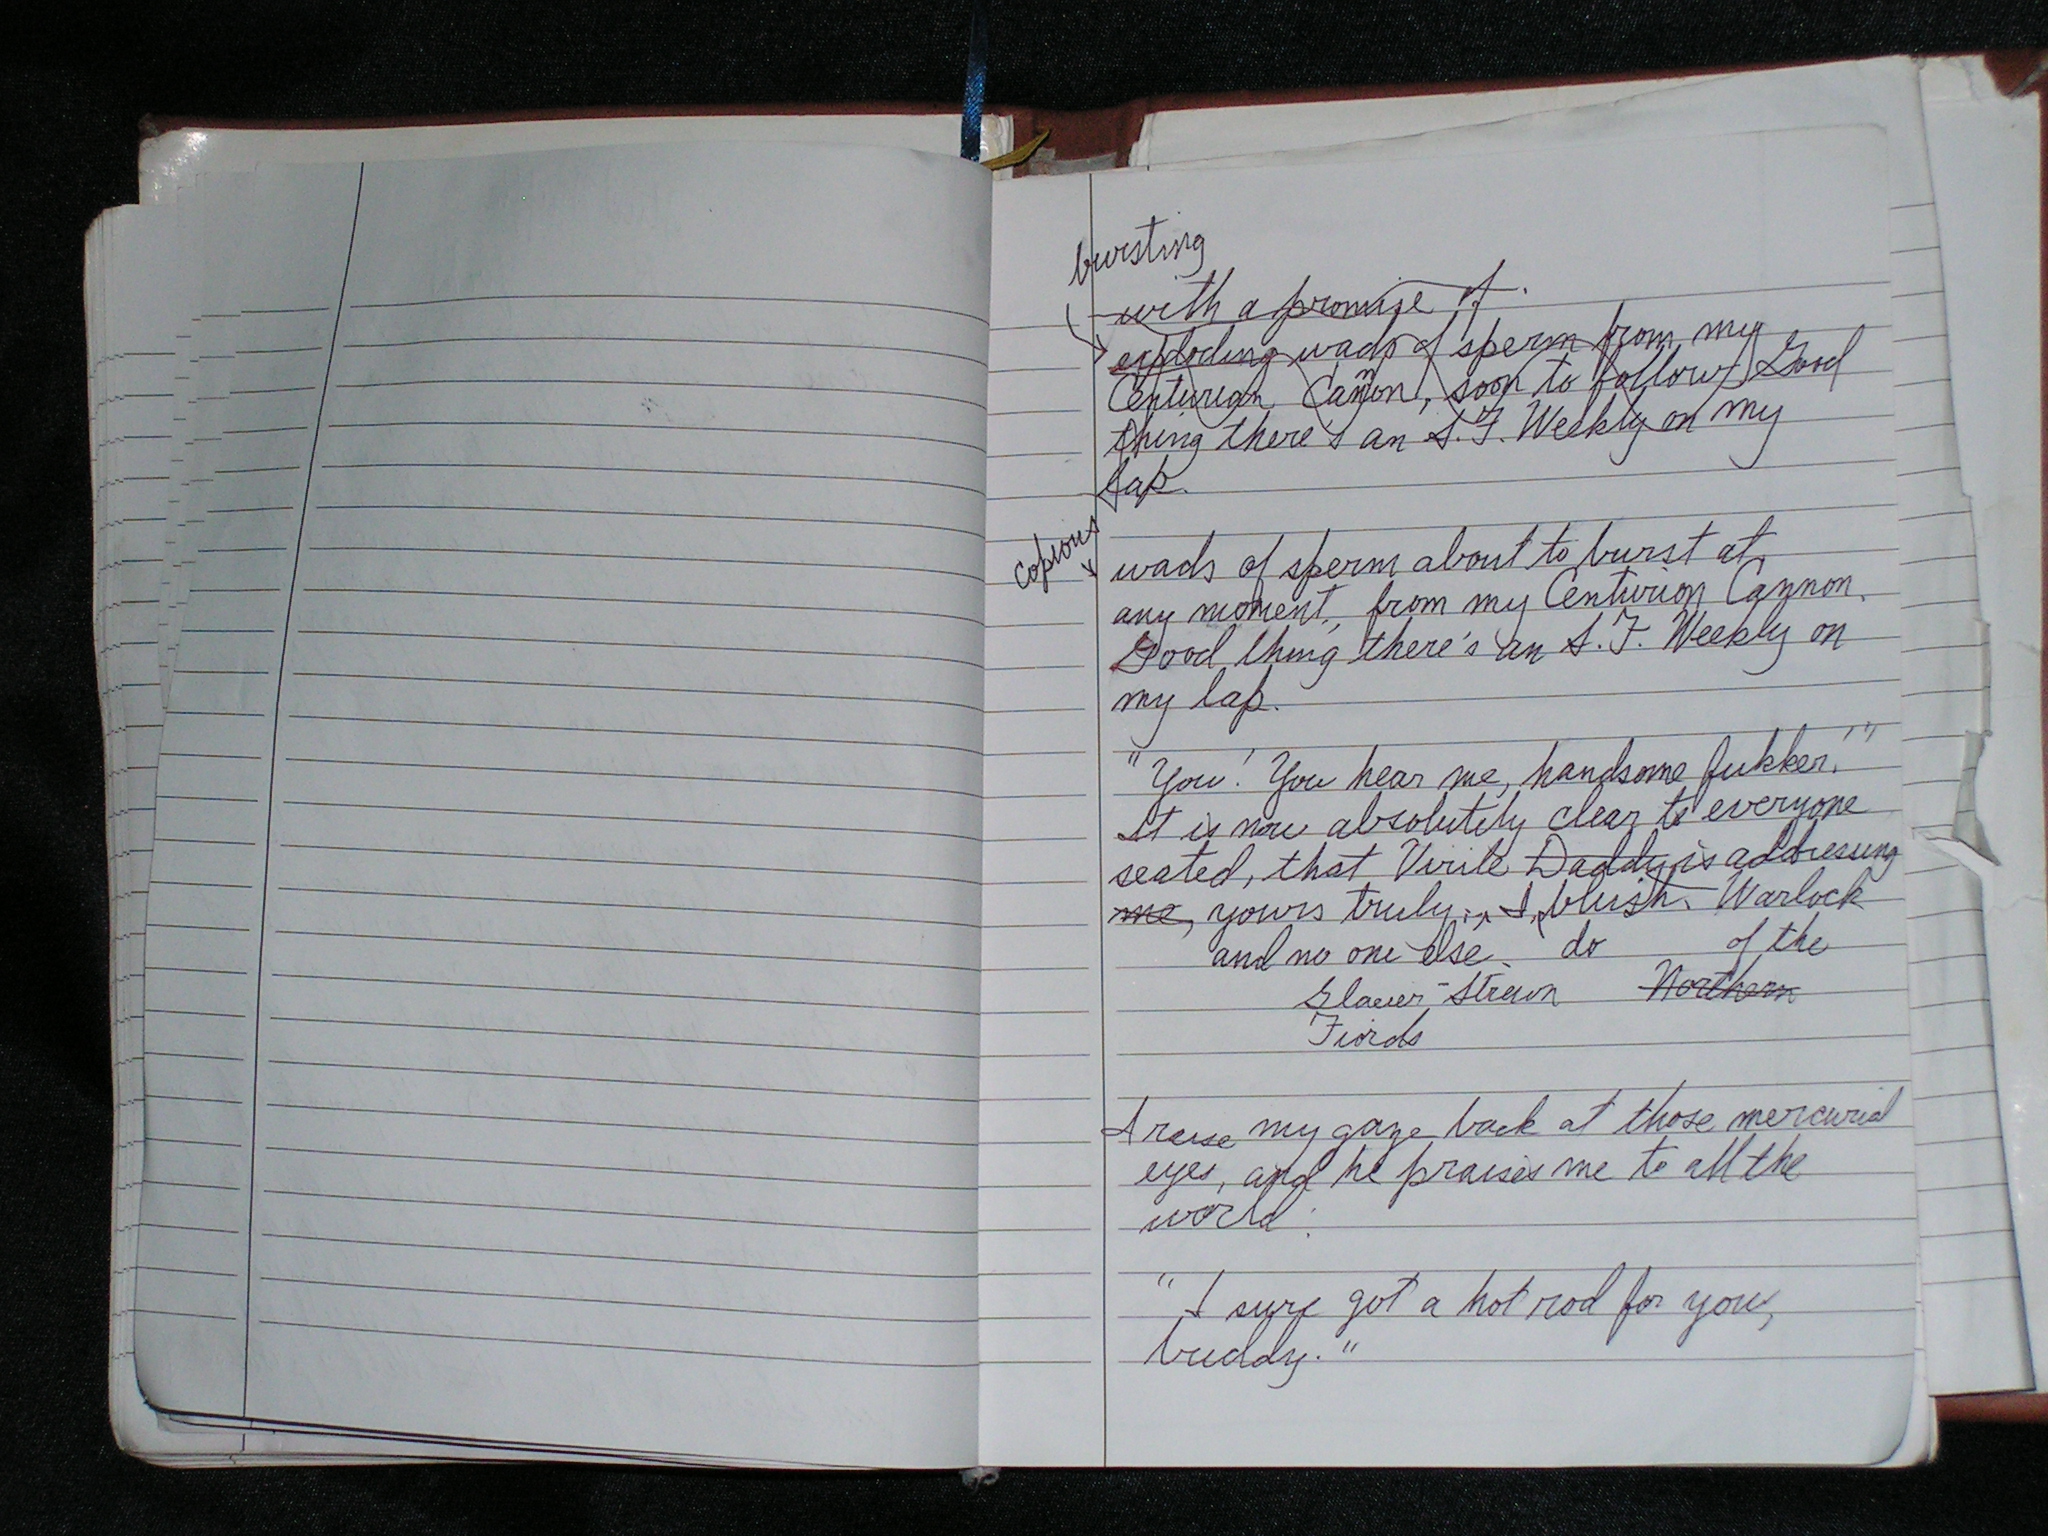 bursting
with a promise of
exploding wads of sperm from my
Centurian Cannon, soon to follow Good
thing there's an S.F. Weekly on my
lap.
copious
wads of sperm about to burst at
any moment, from my Centurion Cannon.
Good thing there's an S.F. Weekly on
my lap.
"You! You hear me, handsome fukker!"
It is now absolutely clear to everyone
seated, that Virile Daddy is addressing
me, yours truly. I blush. Warlock
and no one else. do of the
Glacier-Strewn Northern
Fiords
I raise my gaze back at those mercurial
eyes, and he praises me to all the
world:
"I sure got a hot rod for you,
buddy."